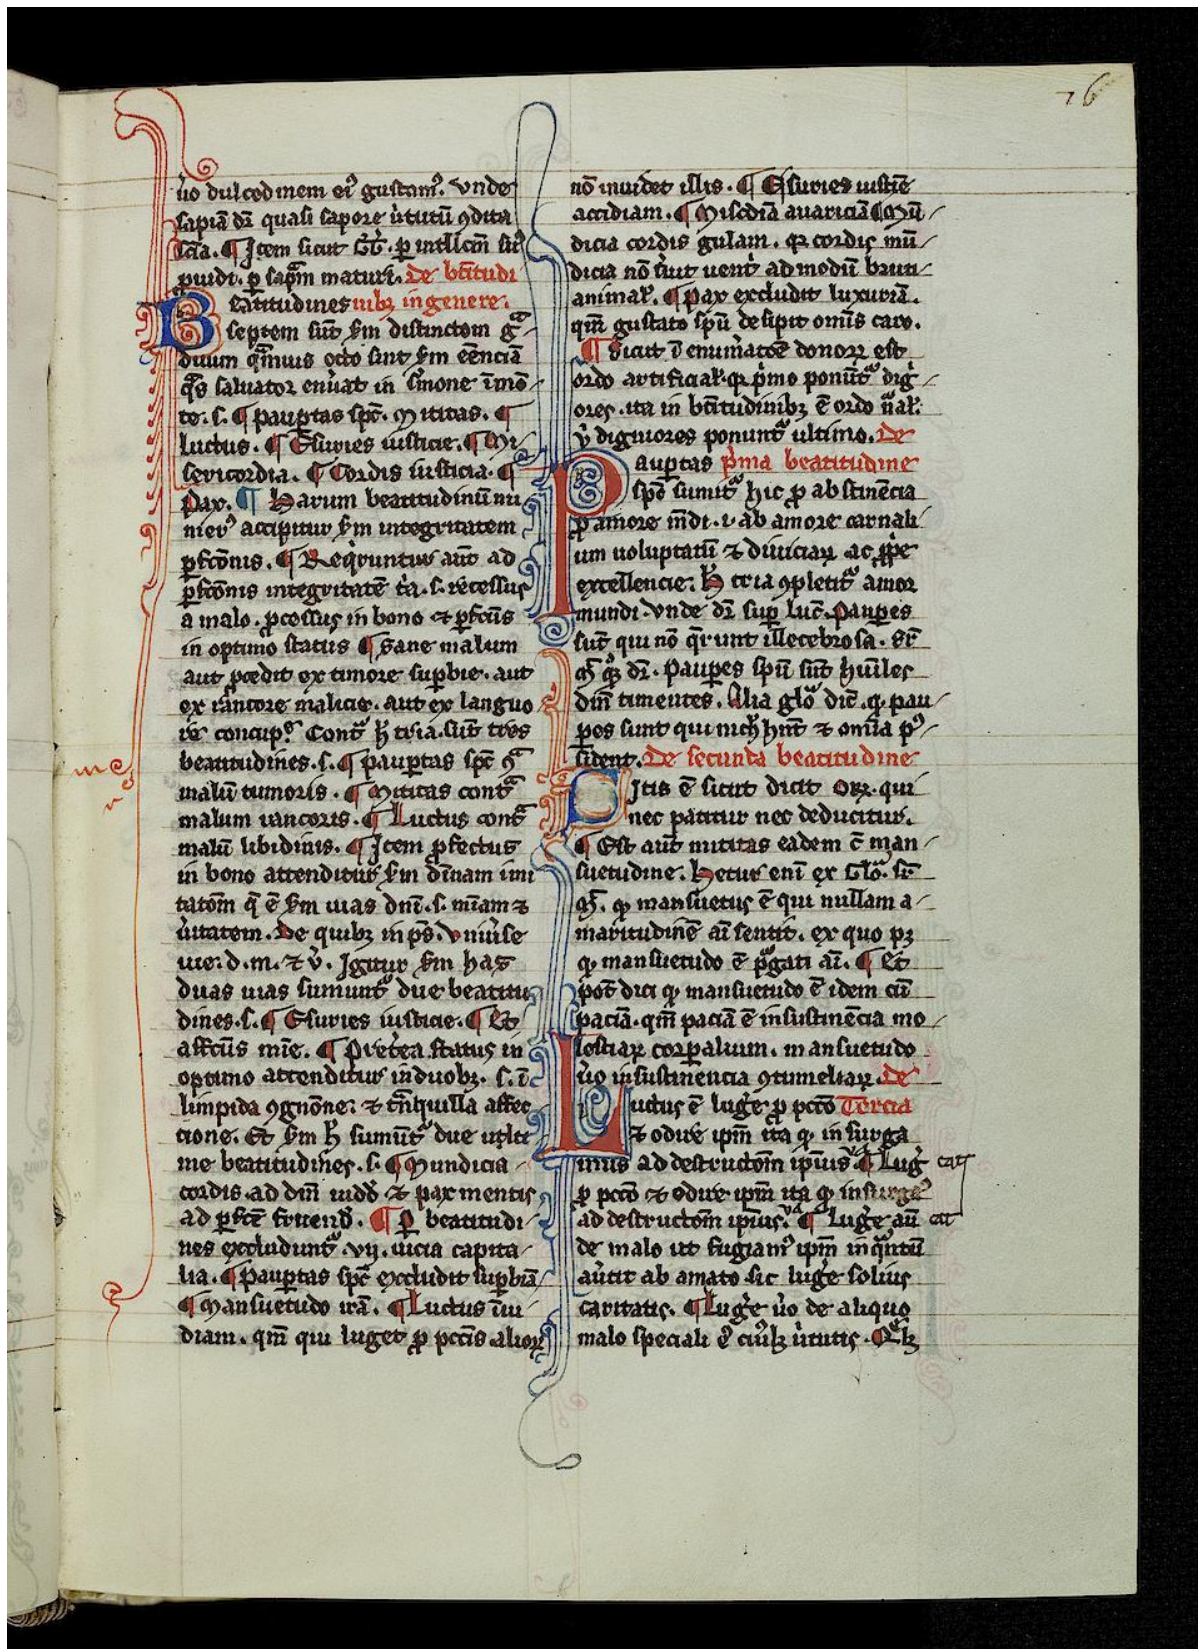 76
ùo dulcedinem eiꝰ gustamꝰ. Vnde
sapīa dr̄ quasi sapore ùtutū ꝯdita
sc̄ia. ¶ Item sicut
puidi. ꝑ maturi. De bt̄itudi
Beatitudines nibꝫ in genere.
septem sūt ẜm distinctōm gͣ-
duum qͣmuis octo sint ẜm eēnciā
qͣs saluator enùat in ẜmone ī mō-
te. s. ¶ Paupertas spc̄. Mititas. ¶
Luctus. ¶ Esuries iusticie. ¶ Mi-
sericordia. ¶ Cordis iusticia. ¶
Pax. ¶ Harum beatitudinū nu
merꝰ accipitur ẜm integritatem
ꝑfc̄ōnis. ¶ Reqͥruntur aūt ad
ꝑfc̄ōnis integritatē tͥa. s. recessus
a malo. ꝓcessus in bono ⁊ ꝑfc̄ūs
in optimo status ¶ Sane malum
aut ꝓcedit ex timore suꝑbie. aut
ex rancore malicie. aut ex languo
re concupꝰ. Contͣ h̄ tria. sūt tres
beatitudines. s. ¶ Pauꝑtas spc̄ ꝯͣ
malū tumoris. ¶ Mititas contͣ
malum rancoris. ¶ Luctus contͣ
malū libidinis. ¶ Item ꝓfectus
in bono attenditur ẜm dīnam imi
tatōm q̄ ē ẜm uias dn̄i. s. mīam ⁊
ùitatem. De quibꝫ in ps̄. Vniùse
uie. d. m. ⁊ ù. Igitur ẜm has
duas uias sumuntᷣ due beatitu
dines. s. ¶ Esuries iusticie. ¶ Et
affc̄ūs mīe. ¶ Pret̀ea status in
optimo attenditur in duobꝫ. s. ī
limpida ꝯgnōne. ⁊ tͣnquilla affec
tione. Et ẜm h̄ sumūtᷣ due ultī
me beatitudines. s. ¶ Mundicia-
cordis ad dīn uidd̄ ⁊ pax mentis
ad ꝑfc̄e fruend̄. ¶ beatitudi-
nes excluduntᷣ .vij. uicia capita-
lia. ¶ Pauꝑtas spc̄ excludit suꝑbiā
¶ Mansuetudo irā. ¶ Luctus īui-
diam. qm̄ qui luget ꝓ pcc̄is alioꝝ
nō inuidet illis. ¶ Esuries iusticīe
accidiam. ¶ Misc̄diā auariciā ¶ Mū-
dicia cordis gulam. qꝛ cordis mū-
dicia nō sùit uentͥ ad modū bruti
animal̄. ¶ Pax excludit luxuriā.
qm̄ gustato spū desipit omīs caro.
¶ Sicut ī enumͣatōe donoꝝ est
ordo artificial̄. qꝛ pͥmo ponūtᷣ digͥ-
ores. ita in bt̄itudinibꝫ ē ordo nͣal̄.
digniores ponuntᷣ ultimo. De
Pauꝑtas pͥma beatitudine
spc̄ sumitᷣ hic ꝓ abstinēcia
ꝓ amore mūdi. i. ab amore carnali
um uoluptatū ⁊ diuiciaꝝ ac ꝓpͥe
excellencie. H̄ tria ꝯpletitᷣ amor
mundi. Vnde dr̄ suꝑ luc̄. Pauꝑes
sūt qui nō qͣrunt illecebrosa.
dr̄. Pauꝑes spū sūt hūiles
dīn timentes. Alia glōᷣ dic̄. ꝙ pau-
ꝑes sunt qui nich̄ hn̄t ⁊ omīa pꝰ-
sident. De secunda beatitudine
Mitis ē sicut dicit Orꝝ. qui
nec patitur nec deducitur.
¶ Est aūt mititas eadem c̄ man-
suetudine. Hetur enī ex Glōᷣ. sr̄
ꝙ mansuetus ē qui nullam a-
maritudinē aī sentit. ex quo pꝫ
ꝙ mansuetudo ē pͥgati aī. ¶ Et
pōt dici ꝙ mansuetudo ē idem cū
paciā. qm̄ paciā ē in sustinēcia mo-
lestiaꝝ corꝑalium. mansuetudo
ùo in sustinencia ꝯtumeliaꝝ. De
Luctus ē lugͤe ꝓ pccō Tercia
⁊ odire ipm̄ ita ꝙ insurga
mus ad destructōm ipīus. ¶ Lugͤ cat
ꝓ pccō ⁊ odire ipm̄ ita ꝙ insurgͤ
ad destructōm ipīus. ¶ Lugͤe aū cat
de malo ut fugiamꝰ ipm̄ inqͣntū
aùtit ab amato sic lugͤe solius
caritatis. ¶ Lugͤe ùo de aliquo
malo speciali cuiꝰlꝫ ùtutis.